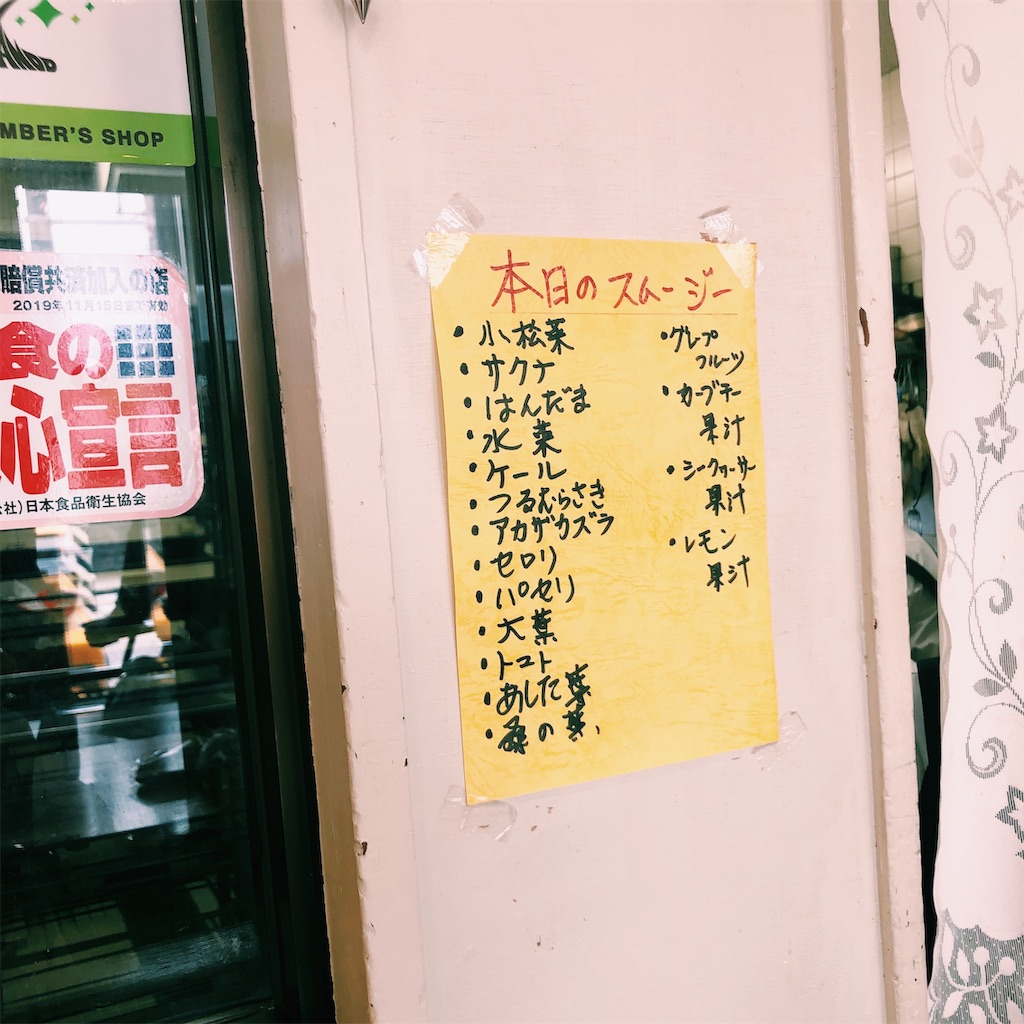 MBER'S SHOP
賠償共済加入の店
2019年11月15日まで有効
食の
心宣言
社)日本食品衛生協会
本日のスムージー
・小松菜
・サクナ
・はんだま
・水菜
・ケール
・つるむらさき
・アカザカズラ
・セロリ
・パセリ
・大葉
・トマト
・あした葉
・桑の葉、
・グレープ
フルーツ
・カーブチー
果汁
・シークヮーサー
果汁
・レモン
果汁